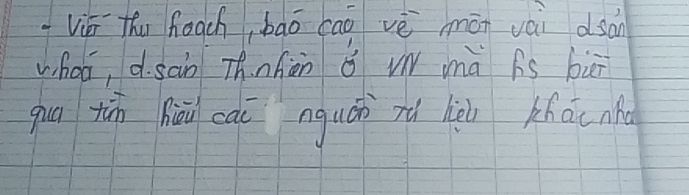 - Viết thu hoạch, báo cáo về một vài d.sản
v.hoá, d.sản Th.nhiên ở VN mà hs biết
qua tìm hiểu các nguồn tư liệu khác nha